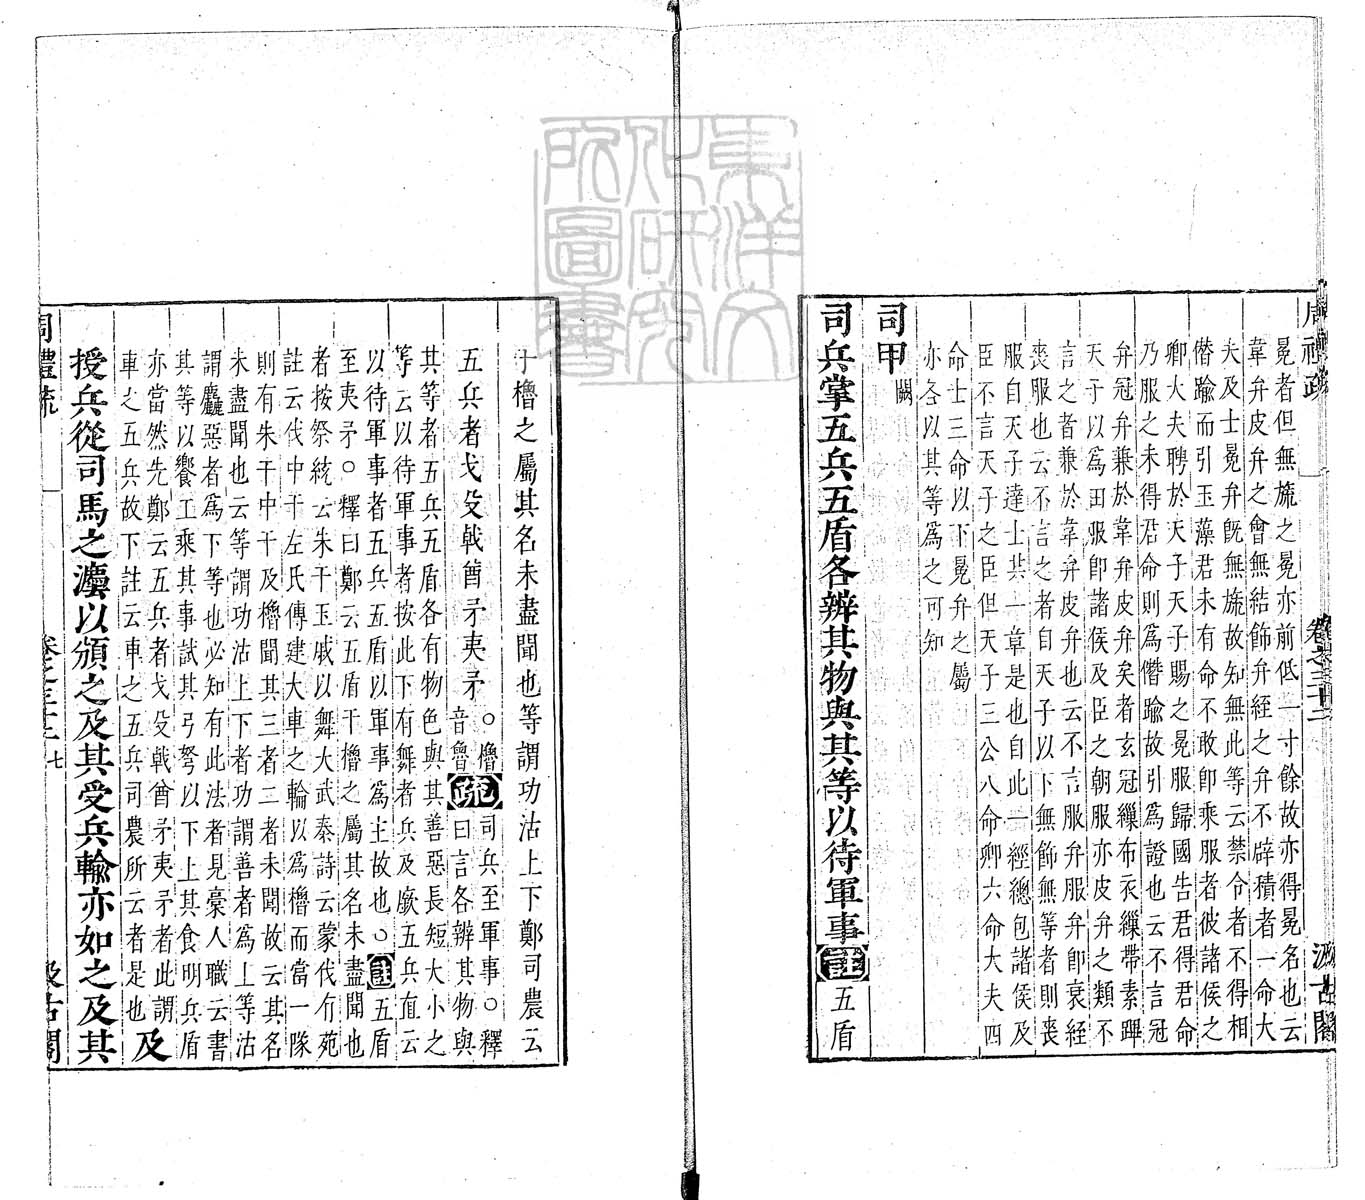 周禮疏 卷之三十二 汲古閣
冕者但無旒之冕亦前低一寸餘故亦得冕名也云
韋弁皮弁之會無結飾弁絰之弁不辟積者一命大
夫及士冕弁旣無旒故知無此等云禁令者不得相
僭踰而引玉藻君未有命不敢卽乘服者彼諸侯之
卿大夫聘於天子天子賜之冕服歸國告君得君命
乃服之未得君命則爲僭踰故引爲證也云不言冠
弁冠弁兼於韋弁皮弁矣者玄冠緇布衣緇帶素韠
天子以爲田服卽諸侯及臣之朝服亦皮弁之類不
言之者兼於韋弁皮弁也云不言服弁服弁卽衰絰
喪服也云不言之者自天子以下無飾無等者則喪
服自天子達士共一章是也自此一經總包諸侯及
臣不言天子之臣但天子三公八命卿六命大夫四
命士三命以下冕弁之屬
亦各以其等爲之可知
司甲闕
司兵掌五兵五盾各辨其物與其等以待軍事註五盾
干櫓之屬其名未盡聞也等謂功沽上下鄭司農云
五兵者戈殳戟酋矛夷矛○櫓音魯疏司兵至軍事○釋曰言各辨其物與
其等者五兵五盾各有物色與其善惡長短大小之
等云以待軍事者按此下有舞者兵及廞五兵直云
以待軍事者五兵五盾以軍事爲主故也○註五盾
至夷矛○釋曰鄭云五盾干櫓之屬其名未盡聞也
者按祭統云朱干玉戚以舞大武秦詩云蒙伐有苑
註云伐中干左氏傳建大車之輪以爲櫓而當一隊
則有朱干中干及櫓聞其三者二者未聞故云其名
未盡聞也云等謂功沽上下者功謂善者爲上等沽
謂麤惡者爲下等也必知有此法者見槀人職云書
其等以饗工乘其事試其弓弩以下上其食明兵盾
亦當然先鄭云五兵者戈殳戟酋矛夷矛者此謂
車之五兵故下註云車之五兵司農所云者是也及
授兵從司馬之灋以頒之及其受兵輸亦如之及其
周禮疏 卷之三十二 七 汲古閣
東洋文化研究所圖書